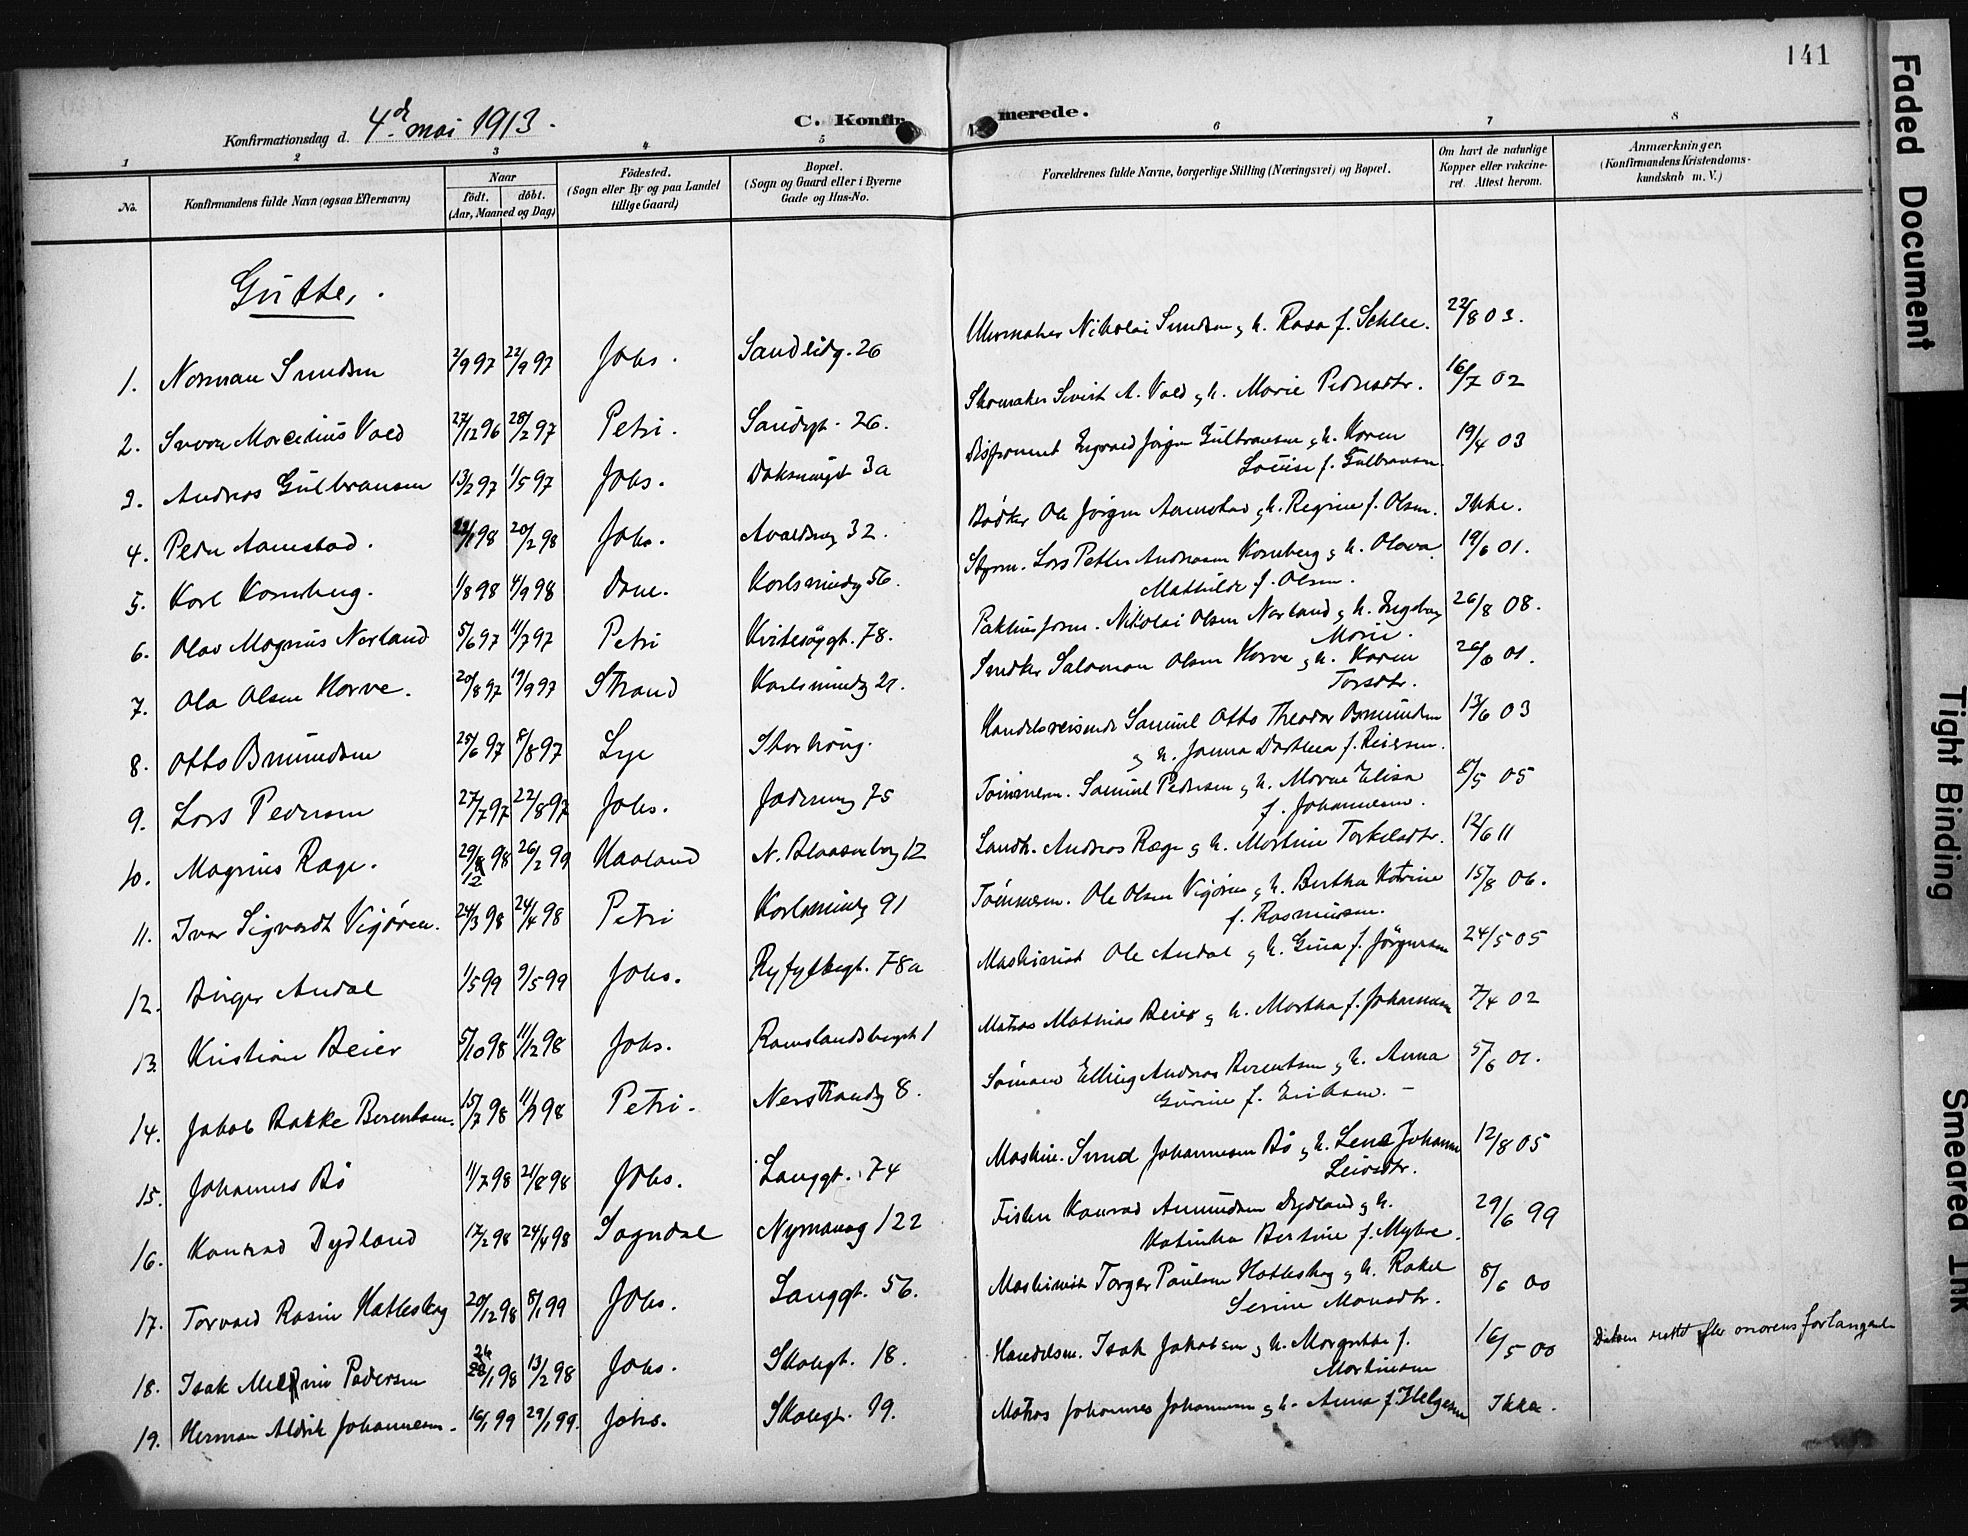 141
Konfirmationsdag d. 4de mai 1913.
C. Konfirmerede.
1 2 3 4 5 6 7 8
No.
Konfirmandens fulde Navn (ogsaa Efternavn)
Naar
født. døbt.
(Aar, Maaned og Dag)
Fødested.
(Sogn eller By og paa Landet
tillige Gaard)
Bopæl.
(Sogn og Gaard eller i Byerne
Gade og Hus-No.
Forældrenes fulde Navne, borgerlige Stilling (Næringsvei) og Bopæl.
Om havt de naturlige
Kopper eller vakcine-
ret. Attest herom.
Anmærkninger.
(Konfirmandens Kristendoms-
kundskab m. V.)
Gutter.
1. Norman Smedsen 2/9 97 22/9 97 Johs. Sandlidg. 26 Urmaker Nikolai Smedsen g h. Rosa f. Schlee. 22/8 03.
2. Marcelius Vold 27/12 96 28/2 97 Petri. Sandgt. 26. Skomaker Sivert A. Vold g h. Marie Pedersdtr. 16/7 02
3. Andreas Gulbransen 13/2 97 1/5 97 Johs. 3a Ingvald Jørgen Gulbransen g h. Karen
Louise f. Gulbransen. 19/4 03
4. Peder Aamstad. 98 20/2 98 Johs. Avaldsng 32. Bødker Ole Jørgen Aamstad g h. Regine f. Olsen. Ikke.
5. Karl Kornberg. 1/8 98 4/9 98 Dom. Karlsmindeg 56. Styrm. Lars Petter Andreasen Kornberg g h. Olava
Mathilde f. Olsen. 19/6 01.
6. Olav Magnus Norland 5/6 97 11/7 97 Petri Kvitesøygt. 78. Pakhusform. Nikolai Olsen Norland g h. Ingeborg
Marie. 26/8 08.
7. Ola Olsen Horve. 20/8 97 19/9 97 Strand Karlsmindeg 21. Snedker Salamon Olsen Horve g h. Karen
Torsdtr. 26/6 01.
8. Otto Omundsen 25/6 97 8/8 97 Lye Storhaug. Handelsreisende Samuel Otto Theodor Omundsen
g h. Janna Dorthea f. Reiersen. 13/6 03
9. Lars Pedersen 27/7 97 22/8 97 Johs. Jaderveg 75 Tømmerm. Samuel Pedersen g h. Maren Elisa
f. Johannesen. 8/5 05
10. Magnus Rage. 29/12 98 26/2 99 Haaland N. Blaasenborg 12 Landh. Andreas Rage g h. Martine Torkelsdtr. 12/6 11
11. Ivar Sigvardt Vigøren. 24/3 98 24/4 98 Petri Karlsmindeg 91 Tømmerm. Ole Olsen Vigøren g h. Bertha Katrine
f. Rasmussen. 15/8 06.
12. Birger Andal 1/5 99 9/5 99 Johs. Ryfylkegt. 78a Maskinist Ole Andal g h. Gina f. Jørgensen 24/5 05
13. Kristian Beier 5/10 98 11/12 98 Johs. Ramslandsbugt 1 Matros Mathias Beier g h. Martha f. Johannesen 7/4 02
14. Jakob Bakke Berentsen. 15/7 98 98 Petri. Nerstrandg 8. Sømand Elling Andreas Berentsen g h. Anna
Gurine f. Eriksen. 5/6 01.
15. Johannes Bø 11/7 98 21/8 98 Johs. Langgt. 74 Maskin. Svend Johannesen Bø g h. Lene Johanne
12/8 05
16. Konrad Dydland 17/2 98 24/4 98 Sogndal Nymanog 122 Fisker Konrad Amundsen Dydland g h.
Katinka Bertine f. Myhre. 29/6 99
17. Torvald Rasin Hatleskog 20/12 98 8/1 99 Johs. Langgt. 56. Maskinist Torger Paulsen Hatleskog g h. Rakel
Serine Monsdtr. 8/6 00
18. Isak Pedersen 26/1 98 13/2 98 Johs. Skolegt. 18. Handelsm. Isak Jakobsen g h. Margrethe f.
Martinsen 16/5 00 rettet efter morens forlangende
19. Herman Aldrik Johannesen. 16/1 99 29/1 99. Johs. Skolegt. 19. Matros Johannes Johannesen g h. Anna f. Helgesen Ikke.
Faded Document
Tight Binding
Smeared Ink